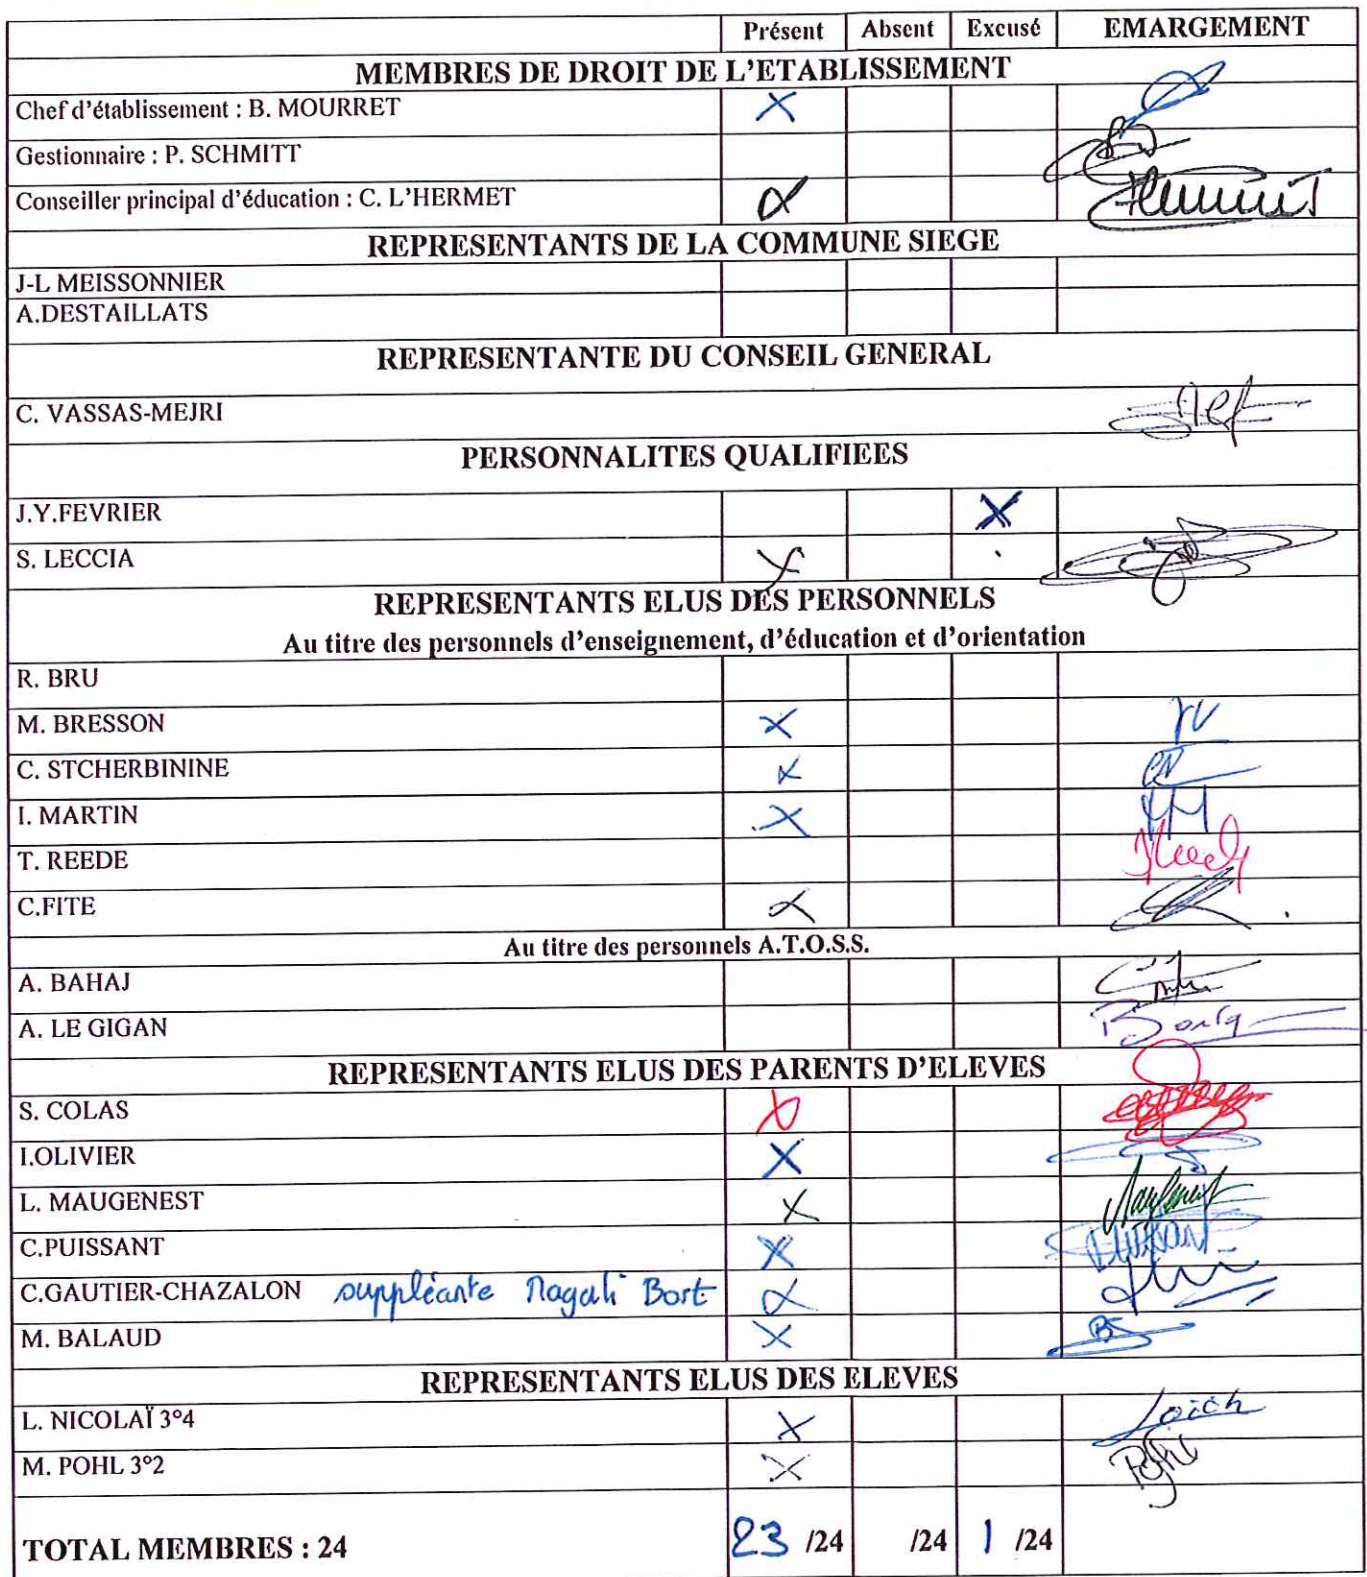 Présent Absent Excusé EMARGEMENT
MEMBRES DE DROIT DE L'ETABLISSEMENT
Chef d'établissement : B. MOURRET
Gestionnaire : P. SCHMITT
Conseiller principal d'éducation : C. L'HERMET
REPRESENTANTS DE LA COMMUNE SIEGE
J-L MEISSONNIER
A.DESTAILLATS
REPRESENTANTE DU CONSEIL GENERAL
C. VASSAS-MEJRI
PERSONNALITES QUALIFIEES
J.Y.FEVRIER
S. LECCIA
REPRESENTANTS ELUS DES PERSONNELS
Au titre des personnels d'enseignement, d'éducation et d'orientation
R. BRU
M. BRESSON
C. STCHERBININE
I. MARTIN
T. REEDE
C.FITE
Au titre des personnels A.T.O.S.S.
A. BAHAJ
A. LE GIGAN
REPRESENTANTS ELUS DES PARENTS D'ELEVES
S. COLAS
I.OLIVIER
L. MAUGENEST
C.PUISSANT
C.GAUTIER-CHAZALON suppléante Magali Bort
M. BALAUD
REPRESENTANTS ELUS DES ELEVES
L. NICOLAÏ 3°4 Loïch
M. POHL 3°2 Pohl
TOTAL MEMBRES : 24 23 /24 /24 1 /24